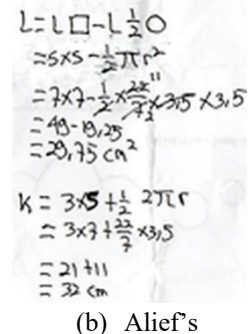 L = L □ - L ½ O
= 5 x 5 - ½ πr²
= 7x7 - ½ x 22/7 x 3,5 x 3,5
= 49 - 19,25
= 29,75 cm²
K = 3x5 + ½ 2πr
= 3x7 + 22/7 x 3,5
= 21 + 11
= 32 cm
(b) Alief's